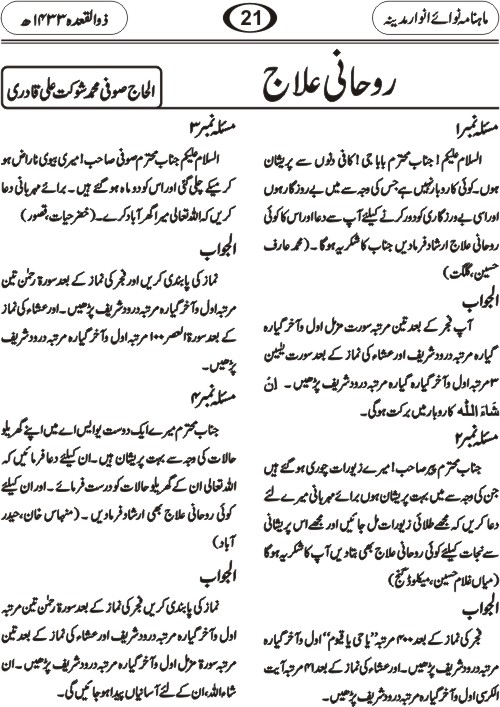 ماہنامہ نوائے انوار مدینہ
21
ذوالقعدہ ۱۴۳۳ھ
روحانی علاج
الحاج صوفی محمد شوکت علی قادری
مسئلہ نمبر ۱
السلام علیکم! جناب محترم بابا جی! کافی دنوں سے پریشان
ہوں۔ کوئی کاروبار نہیں ہے جس کی وجہ سے میں بے روزگار ہوں
اور اسی بے روزگاری کو دور کرنے کیلئے آپ سے دعا اور اس کا کوئی
روحانی علاج ارشاد فرمادیں جناب کا شکریہ ہوگا۔ (محمد عارف
حسین، گلگت)
الجواب
آپ فجر کے بعد تین مرتبہ سورت مزمل اول و آخر گیارہ
گیارہ مرتبہ درود شریف اور عشاء کی نماز کے بعد سورت یٰسین
۳ مرتبہ اول و آخر گیارہ گیارہ مرتبہ درود شریف پڑھیں۔ اِنْ
شَاءَ اللّٰه کاروبار میں برکت ہوگی۔
مسئلہ نمبر ۲
جناب محترم پیر صاحب! میرے زیورات چوری ہو گئے ہیں
جن کی وجہ سے میں بہت پریشان ہوں برائے مہربانی میرے لئے
دعا کریں کہ مجھے طلائی زیورات مل جائیں اور مجھے اس پریشانی
سے نجات کیلئے کوئی روحانی علاج بھی بتادیں آپ کا شکریہ ہوگا
(میاں غلام حسین، میکلوڈ گنج)
الجواب
فجر کی نماز کے بعد ۴۰۰ مرتبہ ”یا حی یا قیوم“ اول و آخر گیارہ
مرتبہ درود شریف پڑھیں۔ اور عشاء کی نماز کے بعد ۴۱ مرتبہ آیت
الکرسی اول و آخر گیارہ مرتبہ درود شریف پڑھیں۔
مسئلہ نمبر ۳
السلام علیکم جناب محترم صوفی صاحب! میری بیوی ناراض ہو
کر میکے چلی گئی اور اس کو دو ماہ ہو گئے ہیں۔ برائے مہربانی دعا
کریں کہ اللہ تعالیٰ میرا گھر آباد کرے۔ (خضر حیات، قصور)
الجواب
نماز کی پابندی کریں اور فجر کی نماز کے بعد سورۃ رحمٰن تین
مرتبہ اول و آخر گیارہ مرتبہ درود شریف پڑھیں۔ اور عشاء کی نماز
کے بعد سورۃ العصر ۱۰۰ مرتبہ اول و آخر گیارہ مرتبہ درود شریف
پڑھیں۔
مسئلہ نمبر ۴
جناب محترم میرے ایک دوست یو ایس اے میں اپنے گھریلو
حالات کی وجہ سے بہت پریشان ہیں۔ ان کیلئے دعا فرمائیں کہ
اللہ تعالیٰ ان کے گھریلو حالات کو درست فرمائے۔ اور ان کیلئے
کوئی روحانی علاج بھی ارشاد فرمادیں۔ (منہاس خان، حیدر
آباد)
الجواب
نماز کی پابندی کریں فجر کی نماز کے بعد سورۃ رحمٰن تین مرتبہ
اول و آخر گیارہ مرتبہ درود شریف اور عشاء کی نماز کے بعد تین
مرتبہ سورۃ مزمل اول و آخر گیارہ مرتبہ درود شریف پڑھیں۔ ان
شاء اللہ، ان کے لئے آسانیاں پیدا ہو جائیں گی۔